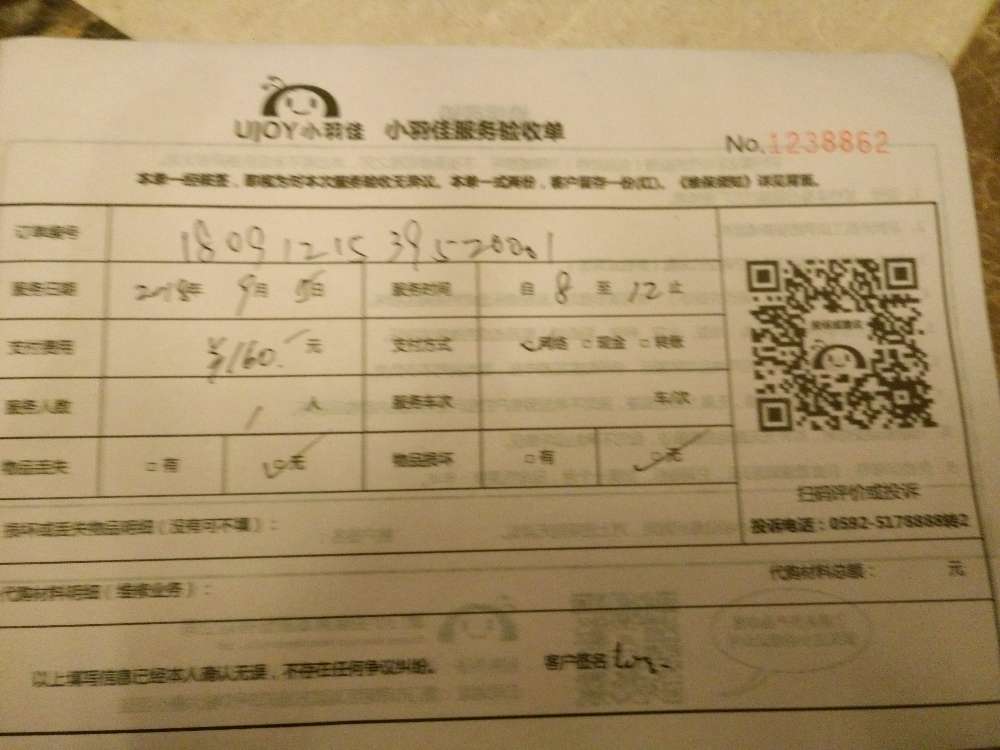 UJOY小羽佳 小羽佳服务验收单
No.1238862
本单一经签署，即视为对本次服务验收无异议。本单一式两份，客户留存一份(红)。《维保须知》详见背面。
订单编号 1809121539520001
服务日期 2018年 9月 15日 服务时间 自 8 至 12 止
支付费用 ¥160. 元 支付方式 ☑网络 □现金 □转账
服务人数 1 人 服务车次 车/次
物品丢失 □有 ☑无 物品损坏 □有 ☑无
扫码评价或投诉
损坏或丢失物品明细（没有可不填）：
投诉电话：0592-5178888转2
代购材料明细（维修业务）： 代购材料总额： 元
以上填写信息已经本人确认无误，不存在任何争议纠纷。 客户签名